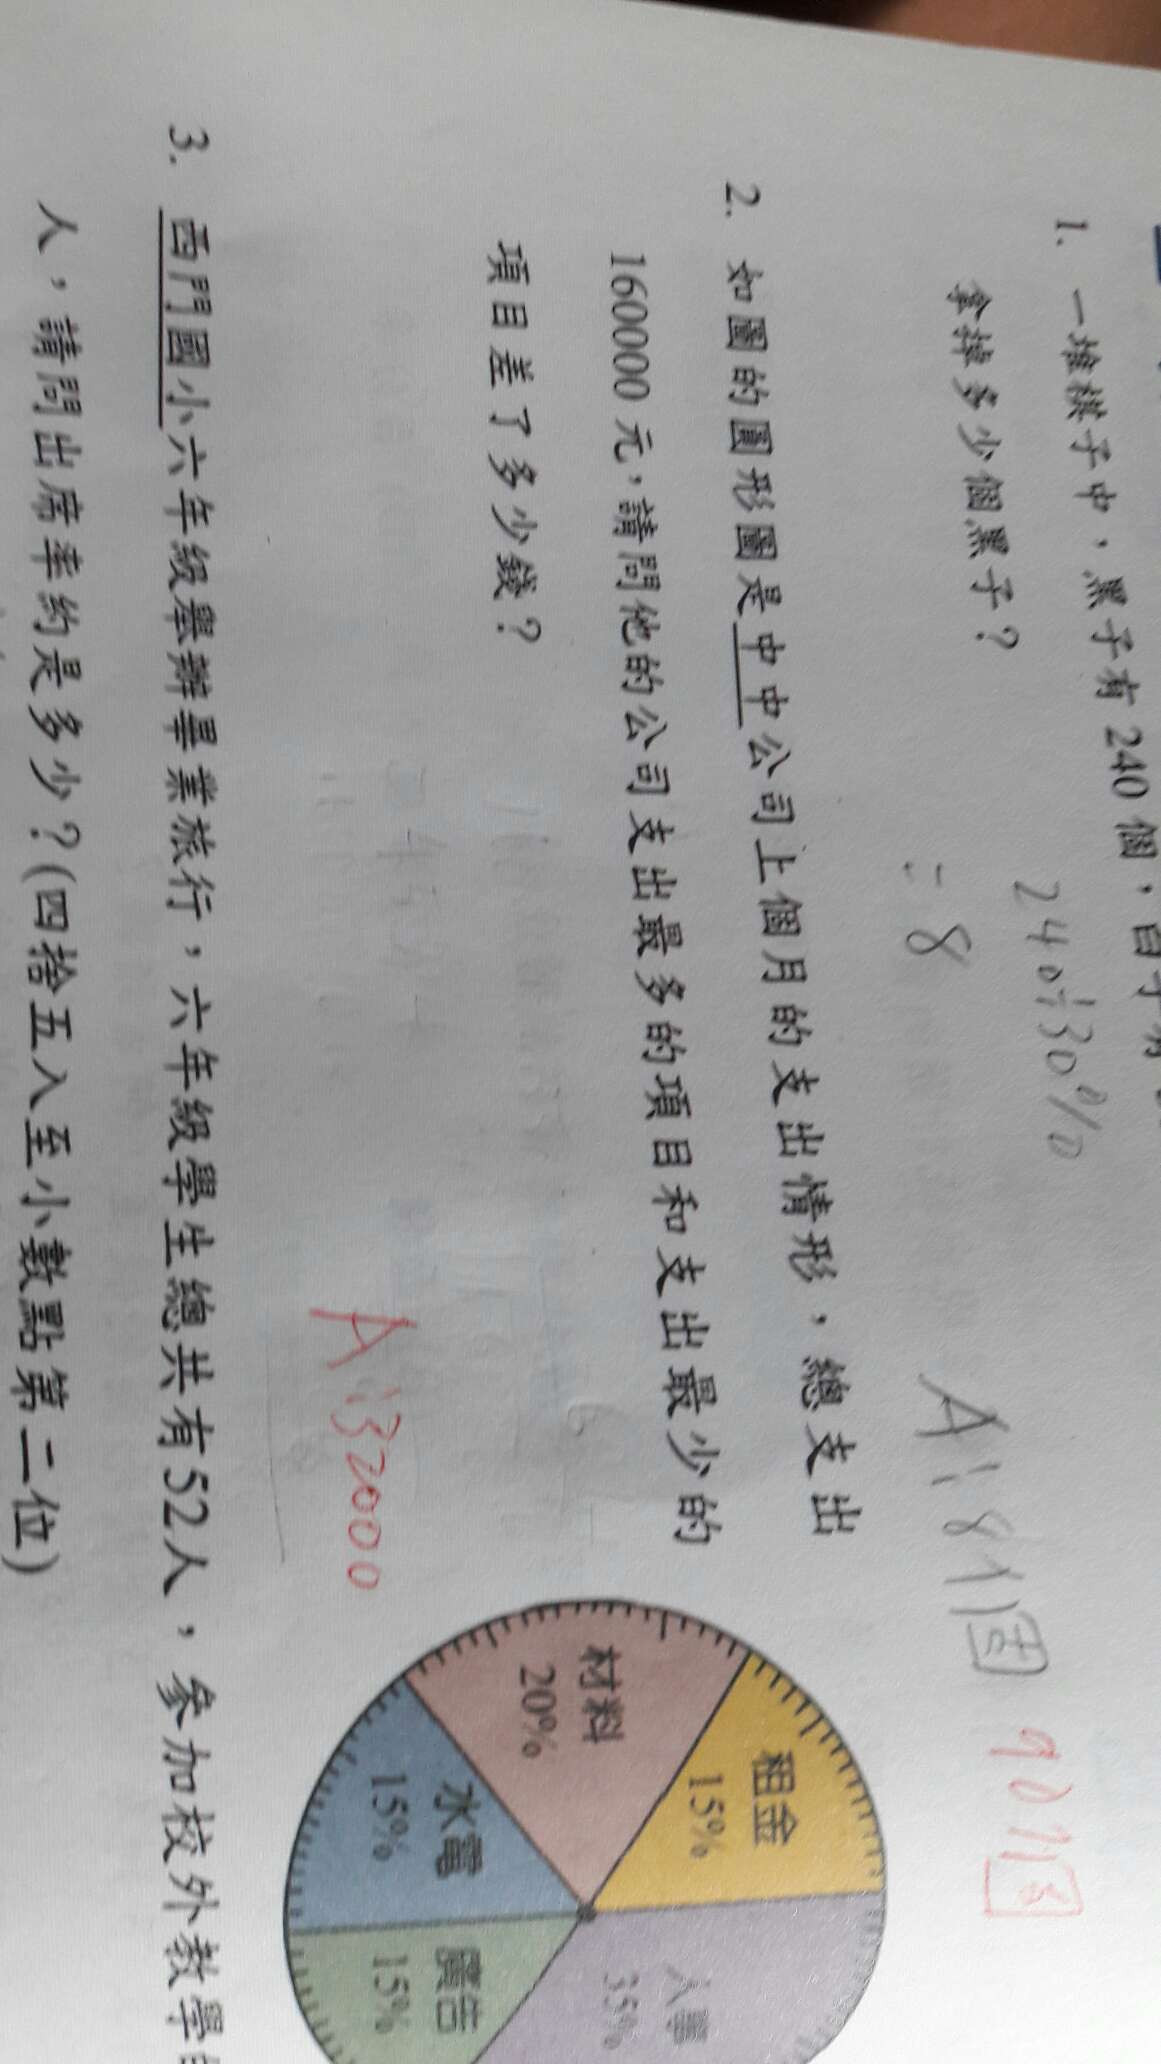 1. 一堆棋子中，黑子有 240 個，白子有
拿掉多少個黑子？
240÷30%
=8
A:8個
90個
2. 如圖的圓形圖是中中公司上個月的支出情形，總支出
160000 元，請問他的公司支出最多的項目和支出最少的
項目差了多少錢？
A:32000
租金
15%
材料
20%
水電
15%
廣告
15%
人事
35%
3. 西門國小六年級舉辦畢業旅行，六年級學生總共有52人，參加校外教學
人，請問出席率約是多少？(四捨五入至小數點第二位)